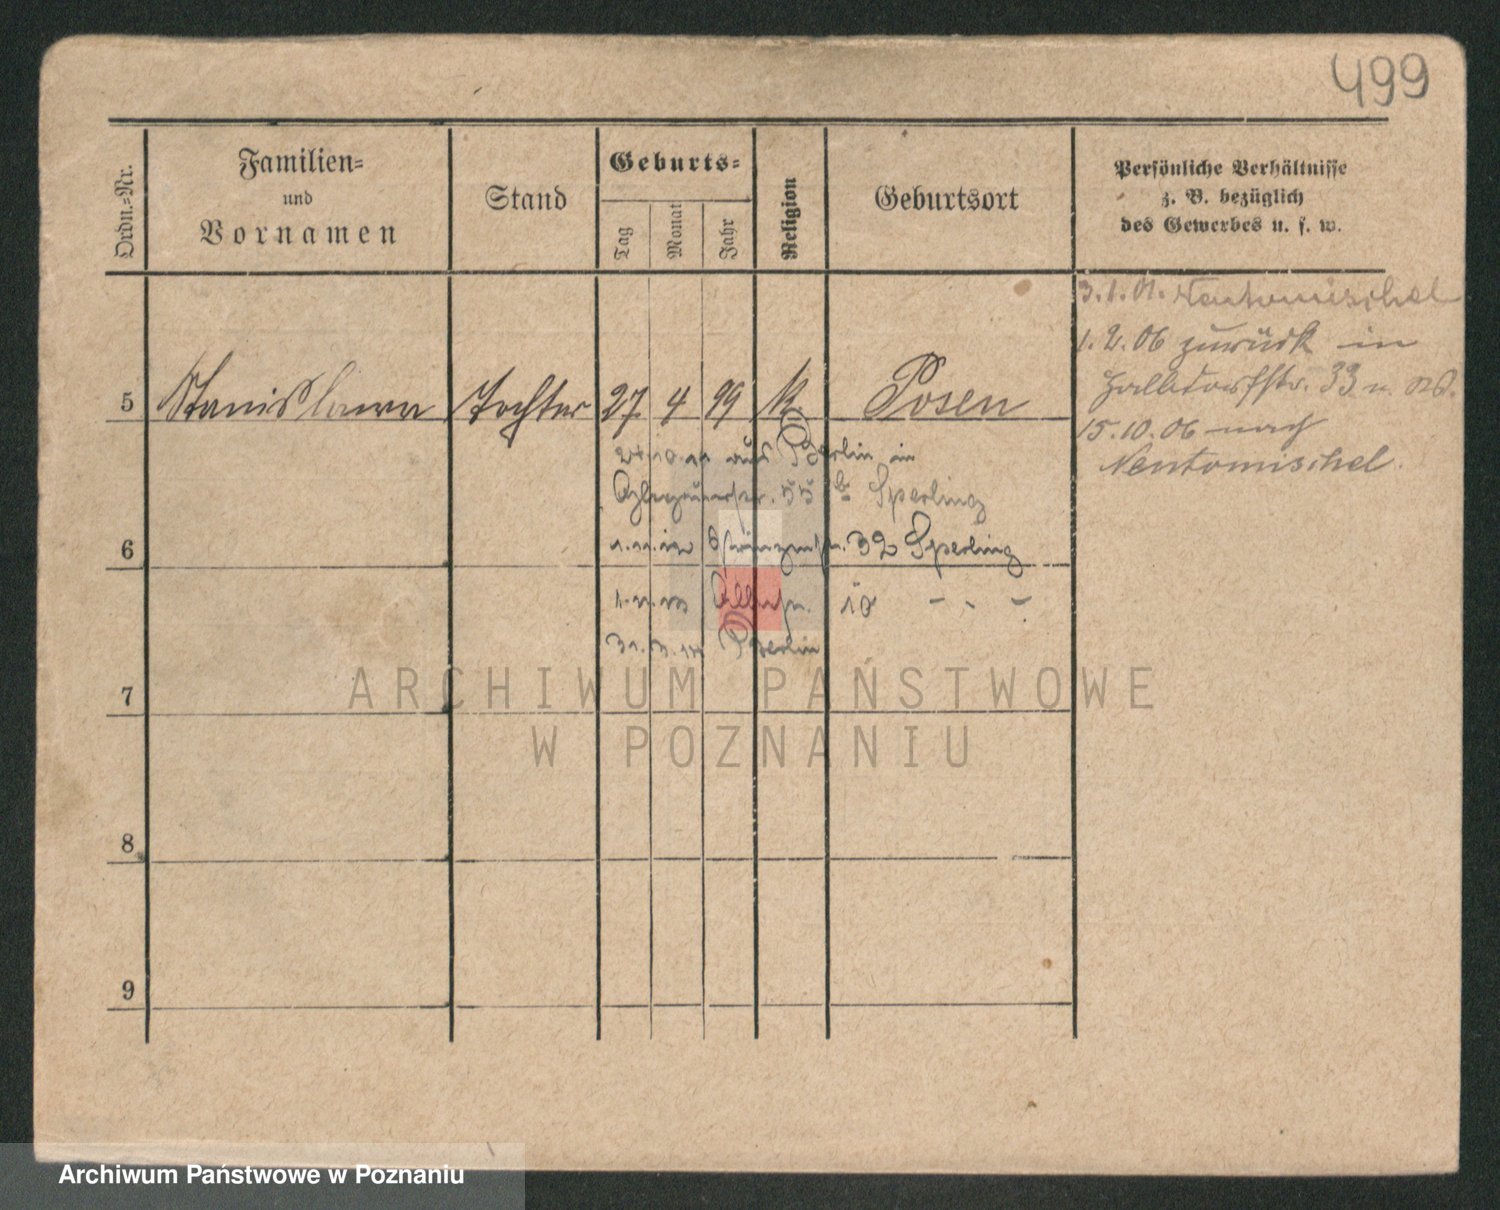 499
Ordn.-Nr.
Familien-
und
Vornamen
Stand
Geburts-
Tag
Monat
Jahr
Religion
Geburtsort
Persönliche Verhältnisse
z. B. bezüglich
des Gewerbes u. s. w.
5 Stanislawa Tochter 27 4 99 K Posen
3.1.01. Neutomischel
1.2.06 zurück in
33 u.
15.10.06 nach
Neutomischel.
aus Berlin in
55 b Sperling
6
32 Sperling
Berlin
7
8
9
ARCHIWUM PAŃSTWOWE
W POZNANIU
Archiwum Państwowe w Poznaniu